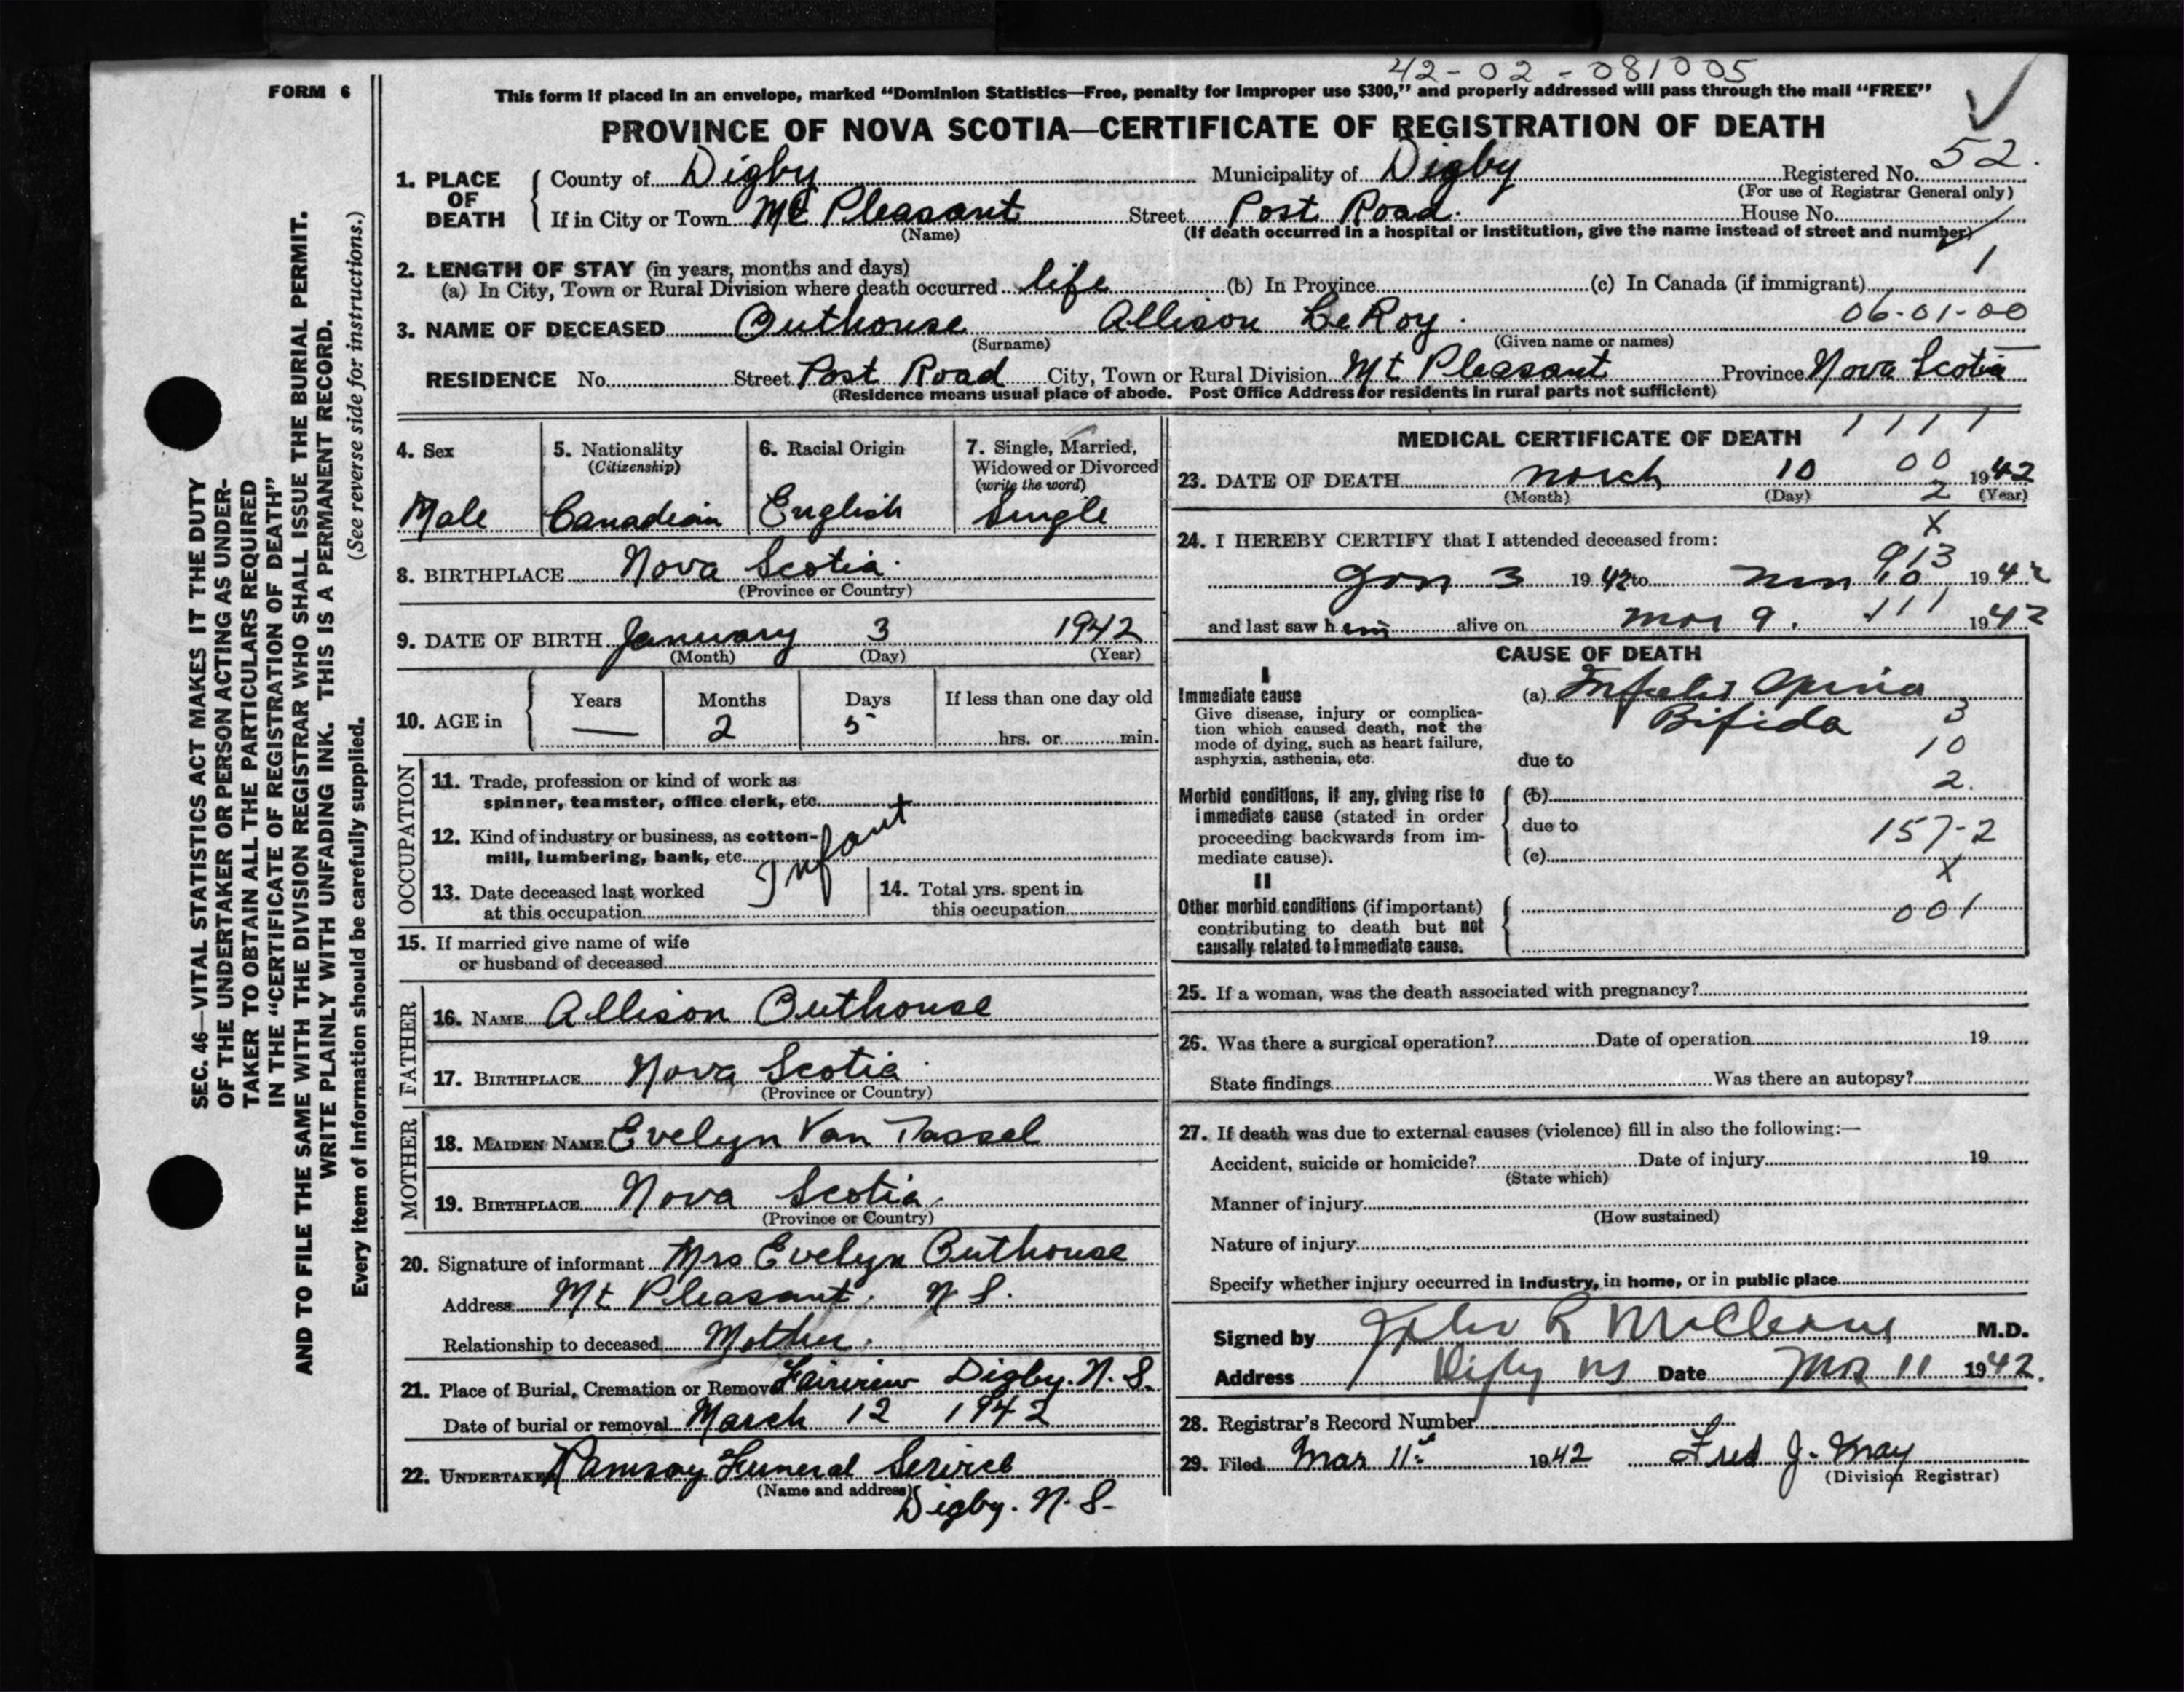 42-02-081005
FORM 6
This form if placed in an envelope, marked "Dominion Statistics—Free, penalty for improper use $300," and properly addressed will pass through the mail "FREE"
PROVINCE OF NOVA SCOTIA—CERTIFICATE OF REGISTRATION OF DEATH
SEC. 46—VITAL STATISTICS ACT MAKES IT THE DUTY
OF THE UNDERTAKER OR PERSON ACTING AS UNDER-
TAKER TO OBTAIN ALL THE PARTICULARS REQUIRED
IN THE "CERTIFICATE OF REGISTRATION OF DEATH"
AND TO FILE THE SAME WITH THE DIVISION REGISTRAR WHO SHALL ISSUE THE BURIAL PERMIT.
WRITE PLAINLY WITH UNFADING INK. THIS IS A PERMANENT RECORD.
Every item of information should be carefully supplied. (See reverse side for instructions.)
1. PLACE OF DEATH
County of Digby Municipality of Digby Registered No. 52.
(For use of Registrar General only)
If in City or Town Mt Pleasant Street Post Road. House No.
(Name) (If death occurred in a hospital or institution, give the name instead of street and number)
2. LENGTH OF STAY (in years, months and days) 1
(a) In City, Town or Rural Division where death occurred life (b) In Province (c) In Canada (if immigrant)
3. NAME OF DECEASED Outhouse Allison LeRoy. 06-01-00
(Surname) (Given name or names)
RESIDENCE No. Street Post Road City, Town or Rural Division Mt Pleasant Province Nova Scotia
(Residence means usual place of abode. Post Office Address for residents in rural parts not sufficient)
4. Sex Male
5. Nationality (Citizenship) Canadian
6. Racial Origin English
7. Single, Married, Widowed or Divorced (write the word) Single
8. BIRTHPLACE Nova Scotia.
(Province or Country)
9. DATE OF BIRTH January 3 1942
(Month) (Day) (Year)
10. AGE in Years — Months 2 Days 5 If less than one day old hrs. or min.
OCCUPATION
11. Trade, profession or kind of work as
spinner, teamster, office clerk, etc.
12. Kind of industry or business, as cotton-
mill, lumbering, bank, etc. Infant
13. Date deceased last worked
at this occupation
14. Total yrs. spent in
this occupation
15. If married give name of wife
or husband of deceased
FATHER
16. NAME Allison Outhouse
17. BIRTHPLACE Nova Scotia.
(Province or Country)
MOTHER
18. MAIDEN NAME Evelyn Van Tassel
19. BIRTHPLACE Nova Scotia.
(Province or Country)
20. Signature of informant Mrs Evelyn Outhouse
Address Mt Pleasant. N S.
Relationship to deceased Mother.
21. Place of Burial, Cremation or Removal Fairview Digby. N. S.
Date of burial or removal March 12 1942
22. UNDERTAKER Ramsay Funeral Service
(Name and address) Digby. N. S.
MEDICAL CERTIFICATE OF DEATH 1 1 1 1
23. DATE OF DEATH March 10 00 1942
(Month) (Day) 2 (Year)
X
24. I HEREBY CERTIFY that I attended deceased from:
913
Jan 3 1942 to Mar 10 1942
and last saw him alive on Mar 9. 111 1942
CAUSE OF DEATH
I
Immediate cause (a) Spina
Give disease, injury or complica- Bifida 3
tion which caused death, not the
mode of dying, such as heart failure, 10
asphyxia, asthenia, etc. due to
2.
Morbid conditions, if any, giving rise to (b)
immediate cause (stated in order due to
proceeding backwards from im- 157-2
mediate cause). (c)
X
II
Other morbid conditions (if important) 001
contributing to death but not
causally related to immediate cause.
25. If a woman, was the death associated with pregnancy?
26. Was there a surgical operation? Date of operation 19
State findings Was there an autopsy?
27. If death was due to external causes (violence) fill in also the following:—
Accident, suicide or homicide? Date of injury 19
(State which)
Manner of injury
(How sustained)
Nature of injury
Specify whether injury occurred in industry, in home, or in public place
Signed by John R McCleave M.D.
Address Digby NS Date Mar 11 1942.
28. Registrar's Record Number
29. Filed Mar 11st 1942 Fred J. May
(Division Registrar)